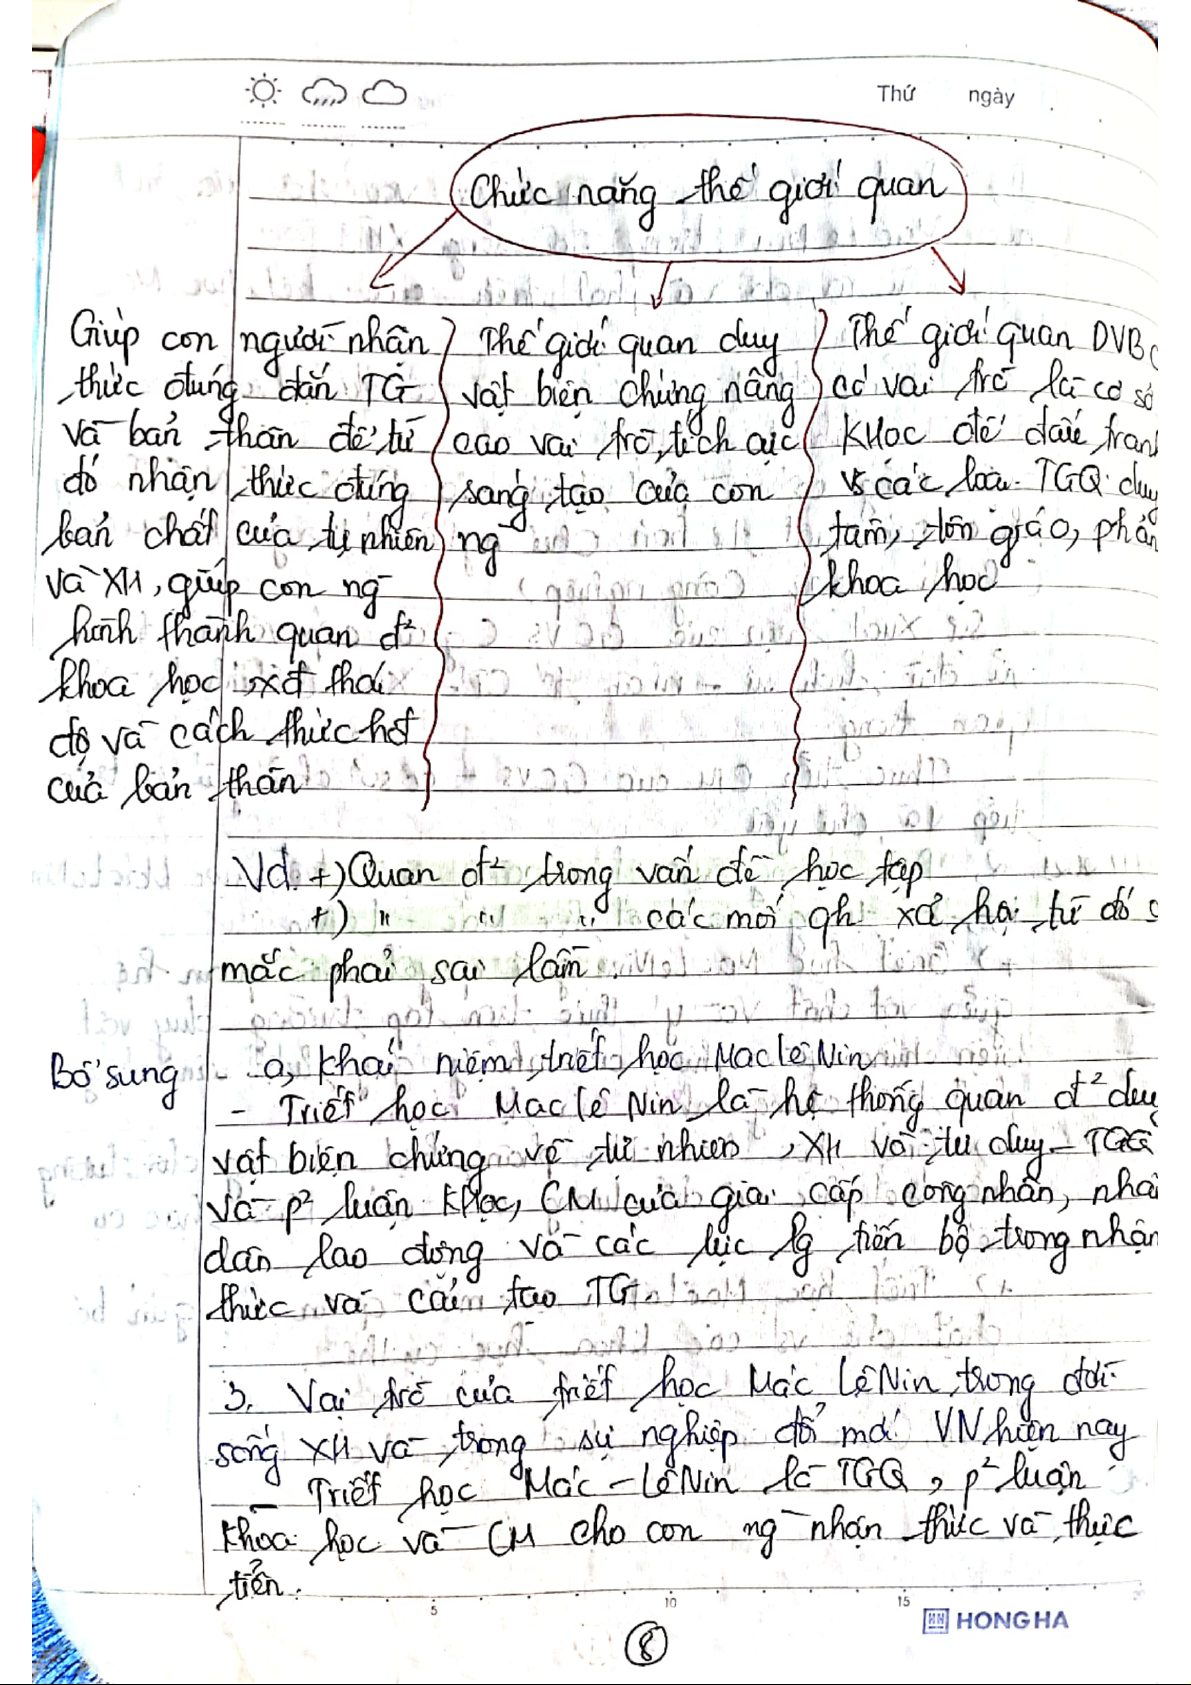 Thứ ngày
Chức năng thế giới quan
Giúp con người nhận
thức đúng đắn TG
và bản thân để từ
đó nhận thức đúng
bản chất của tự nhiên
và XH, giúp con ng
hình thành quan đ²
khoa học, xđ thái
độ và cách thức hđ
của bản thân
Thế giới quan duy
vật biện chứng nâng
cao vai trò, tích cực
sáng tạo của con
ng
Thế giới quan DVBC
có vai trò là cơ sở
KHọc để đấu tranh
vs các loại TGQ duy
tâm, tôn giáo, phản
khoa học
Vd. +) Quan đ² trong vấn đề học tập
+) " " " các mối qh xã hội từ đó
mắc phải sai lầm
Bổ sung
a, Khái niệm triết học Mac Lê Nin
- Triết học Mac Lê Nin là hệ thống quan đ² duy
vật biện chứng về tự nhiên, XH và tư duy - TGQ
và p² luận KHọc, CM của giai cấp công nhân, nhân
dân lao động và các lực lg tiến bộ trong nhận
thức và cải tạo TG.
3. Vai trò của triết học Mác Lê Nin trong đời
sống XH và trong sự nghiệp đổi mới VN hiện nay
- Triết học Mác - Lê Nin là TGQ, p² luận
khoa học và CM cho con ng nhận thức và thực
tiễn.
5 10 15
HONG HA
8